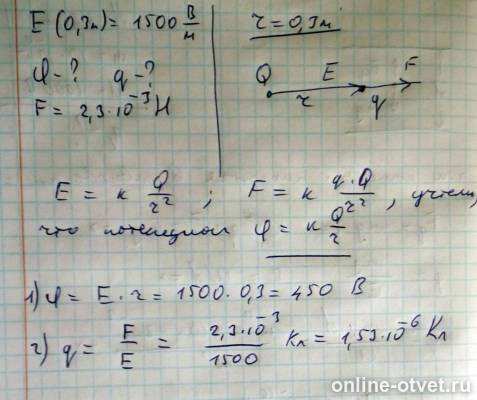 E (0,3м) = 1500 В/м
φ - ? q - ?
F = 2,3·10⁻³ Н
r = 0,3м
Q E F
r q
E = к Q/r² ; F = к q·Q/r² , учтём,
что потенциал φ = к Q/r
1) φ = E·r = 1500·0,3 = 450 В
2) q = F/E = 2,3·10⁻³/1500 Кл = 1,53·10⁻⁶ Кл
online-otvet.ru